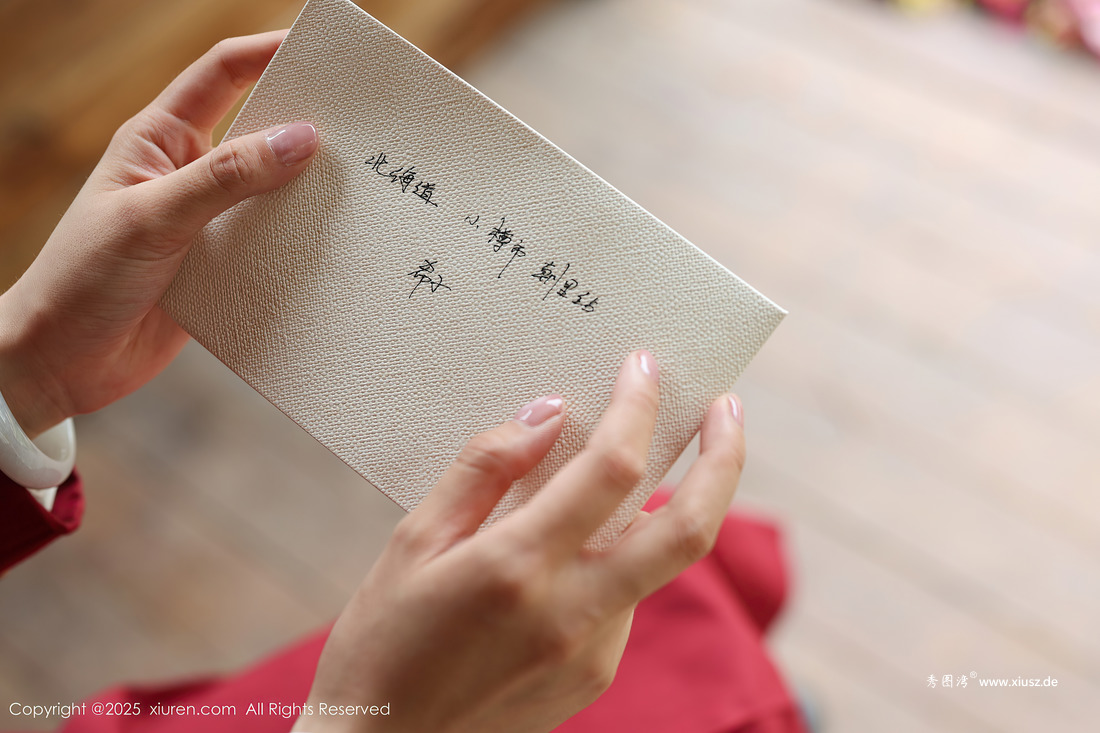 北海道 小樽市 朝里站
希子
Copyright @2025 xiuren.com All Rights Reserved
秀图湾® www.xiusz.de